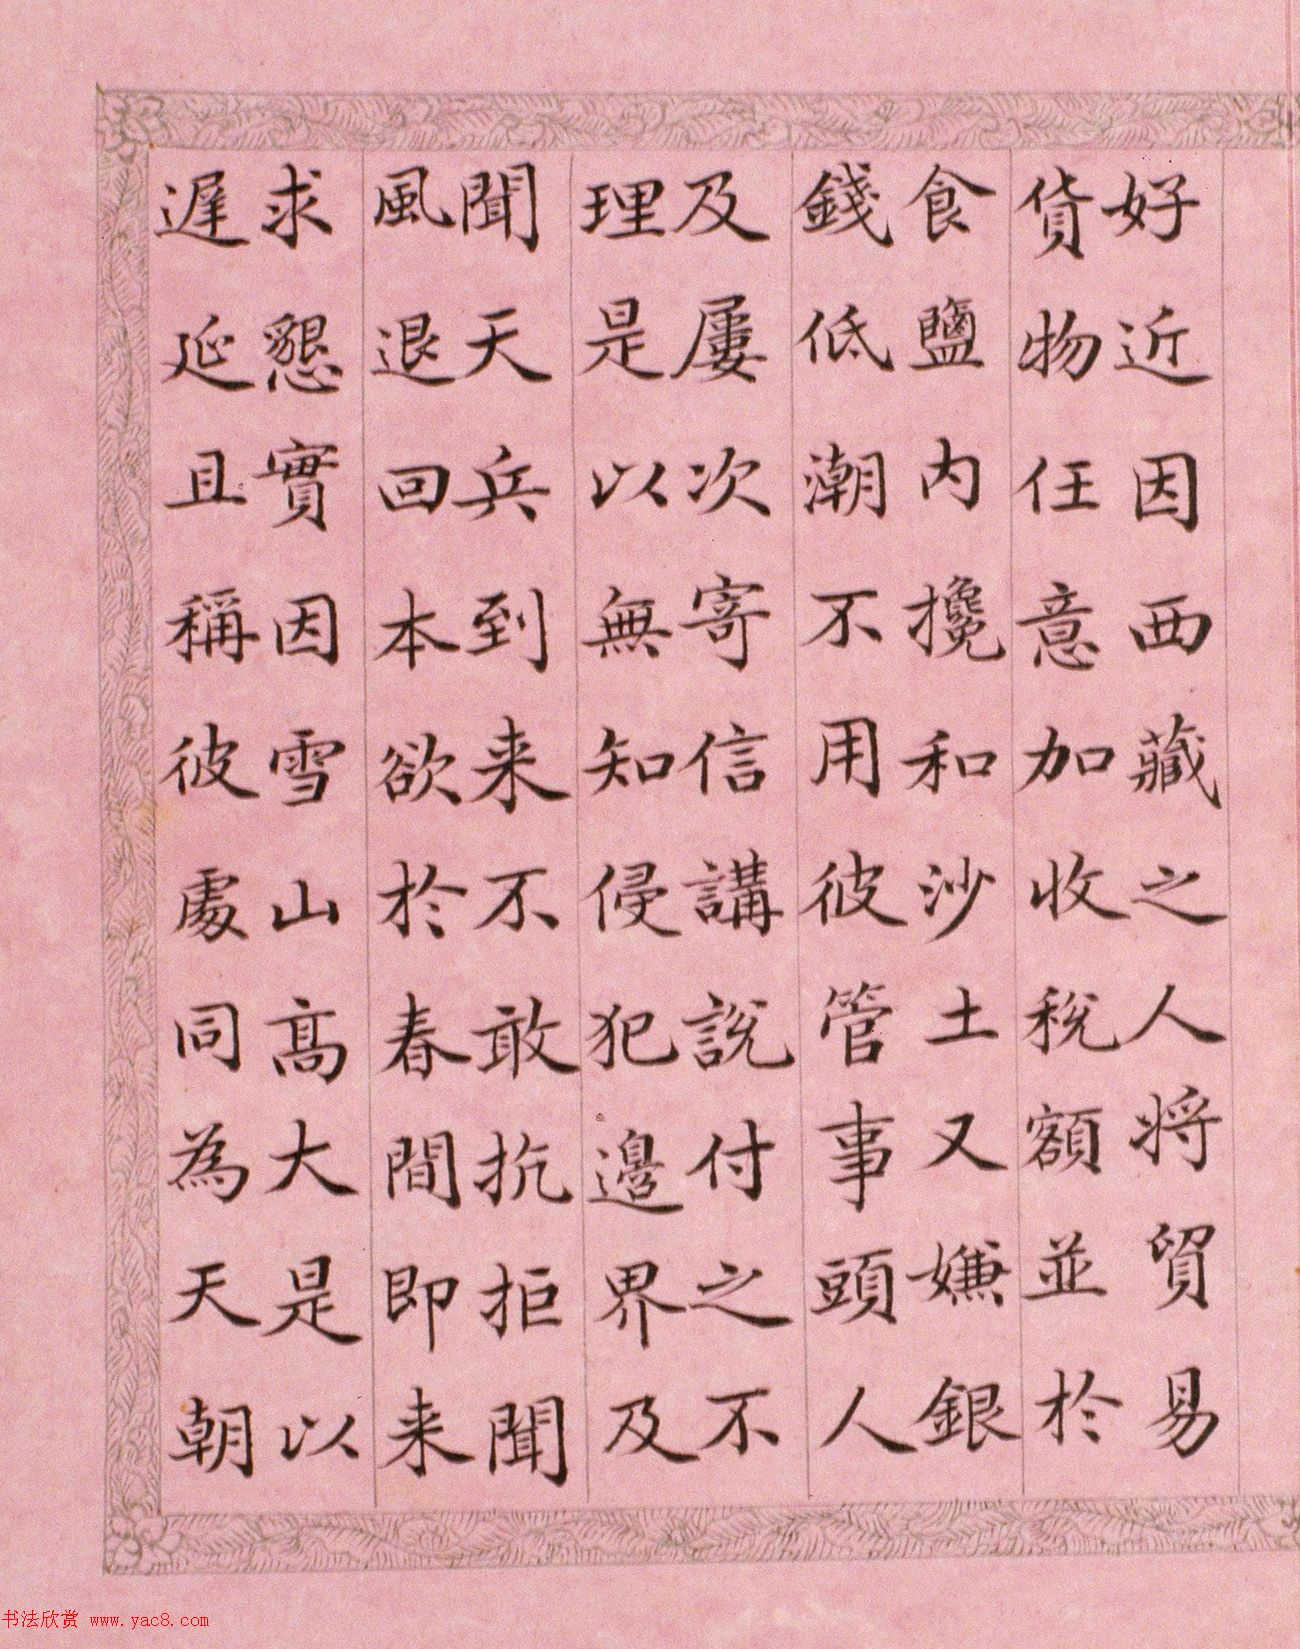 好近因西藏之人將貿易
貨物任意加收稅額並於
食鹽内攙和沙土又嫌銀
錢低潮不用彼管事頭人
及屢次寄信講説付之不
理是以無知侵犯邊界及
聞天兵到来不敢抗拒聞
風退回本欲於春間即来
求懇實因雪山高大是以
遲延且稱彼處同為天朝
书法欣赏 www.yac8.com